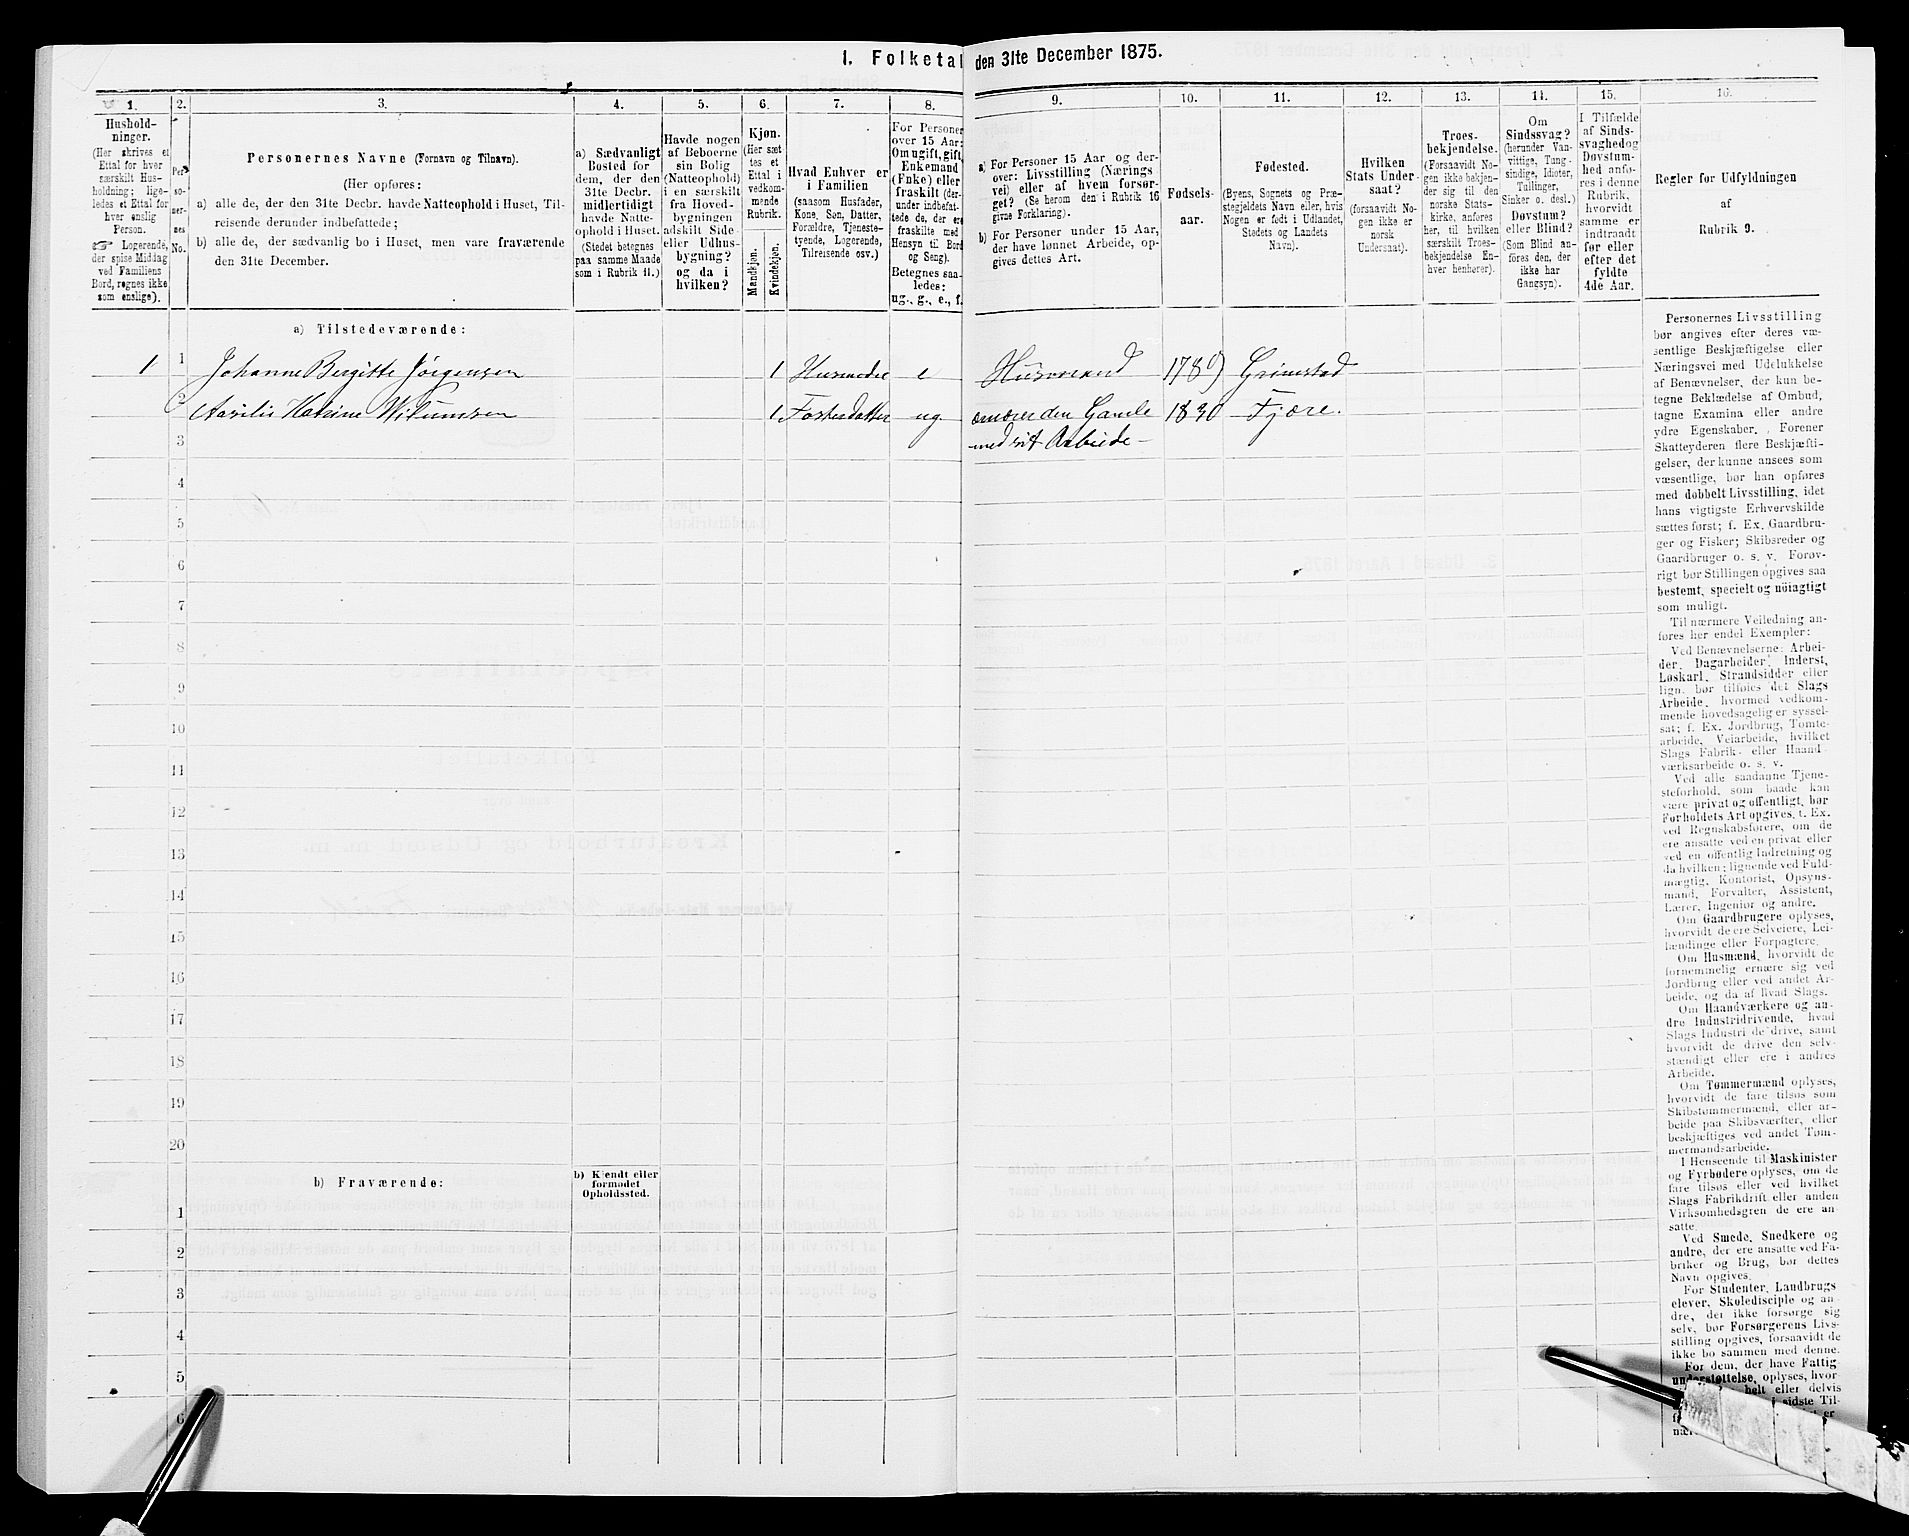 1. Folketal den 31te December 1875.
1. 2. 3. 4. 5. 6. 7. 8. 9. 10. 11. 12. 13. 14. 15. 16.
Hushold-
ninger.
(Her skrives et
Ettal for hver
særskilt Hus-
holdning; lige-
ledes et Ettal for
hver enslig
Person.
☞ Logerende,
der spise Middag
ved Familiens
Bord, regnes ikke
som enslige).
Per-
so-
ner-
nes
No.
Personernes Navne (Fornavn og Tilnavn).
(Her opføres:
a) alle de, der den 31te Decbr. havde Natteophold i Huset, Til-
reisende derunder indbefattede;
b) alle de, der sædvanlig bo i Huset, men vare fraværende
den 31te December.
a) Sædvanligt
Bosted for
dem, der den
31te Decbr.
midlertidigt
havde Natte-
ophold i Huset.
(Stedet betegnes
paa samme Maade
som i Rubrik 11.)
Havde nogen
af Beboerne
sin Bolig
(Natteophold)
i en særskilt
fra Hoved-
bygningen
adskilt Side-
eller Udhus-
bygning?
og da i
hvilken?
Kjøn.
(Her sæt-
tes et
Ettal i
vedkom-
mende
Rubrik.
Mandkjøn.
Kvindekjøn.
Hvad Enhver er
i Familien
(saasom Husfader,
Kone, Søn, Datter,
Forældre, Tjeneste-
tyende, Logerende,
Tilreisende osv.)
For Personer
over 15 Aar:
Om ugift, gift,
Enkemand
(Enke) eller
fraskilt (der-
under indbefat-
tede de, der ere
fraskilte med
Hensyn til Bord
og Seng).
Betegnes saa-
ledes:
ug., g., e., f.
a) For Personer 15 Aar og der-
over: Livsstilling (Nærings
vei) eller af hvem forsør-
get? (Se herom den i Rubrik 16
givne Forklaring).
b) For Personer under 15 Aar,
der have lønnet Arbeide, op-
gives dettes Art.
Fødsels-
aar.
Fødested.
(Byens, Sognets og Præ-
stegjeldets Navn eller, hvis
Nogen er født i Udlandet,
Stedets og Landets
Navn).
Hvilken
Stats Under-
saat?
(forsaavidt No-
gen ikke er
norsk
Undersaat).
Troes-
bekjendelse.
(Forsaavidt No-
gen ikke bekjen-
der sig til den
norske Stats-
kirke, anføres
her, til hvilken
særskilt Troes-
bekjendelse En-
hver henhører).
Om
Sindssvag?
(herunder Van-
vittige, Tung-
sindige, Idioter,
Tullinger,
Sinker o. desl.)
Døvstum?
eller Blind?
(Som Blind an-
føres den, der
ikke har
Gangsyn).
I Tilfælde
af Sinds-
svaghed og
Døvstum-
hed anfø-
res i denne
Rubrik,
hvorvidt
samme er
indtraadt
før eller
efter det
fyldte
4de Aar.
Regler for Udfyldningen
af
Rubrik 9.
a) Tilstedeværende:
1 1 Johanne Bergitte Jörgensen 1 Husmoder e Husmand Grimstad
2 Katrine 1 Fosterdatter ug. ernærer den Gamle 1830 Fjære.
3 med sit Arbeide
4
5
6
7
8
9
10
11
12
13
14
15
16
17
18
19
20
b) Fraværende:
b) Kjendt eller
formodet
Opholdssted.
1
2
3
4
5
6
Personernes Livsstilling
bør angives efter deres væ-
sentlige Beskjæftigelse eller
Næringsvei med Udelukkelse
af Benævnelser, der kun be-
tegne Beklædelse af Ombud,
tagne Examina eller andre
ydre Egenskaber. Forener
Skatteyderen flere Beskjæfti-
gelser, der kunne ansees som
væsentlige, bør han opføres
med dobbelt Livsstilling, idet
hans vigtigste Erhvervskilde
sættes først; f. Ex. Gaardbru-
ger og Fisker; Skibsreder og
Gaardbruger o. s. v. Forøv-
rigt bør Stillingen opgives saa
bestemt, specielt og nöiagtigt
som muligt.
Til nærmere Veiledning an-
føres her endel Exempler:
Ved Benævnelserne: Arbei-
der, Dagarbeider, Inderst,
Løskarl, Strandsidder eller
lign. bør tilføies det Slags
Arbeide, hvormed vedkom-
mende hovedsagelig er syssel-
sat; f. Ex. Jordbrug, Tomte-
arbeide, Veiarbeide, hvilket
Slags Fabrik- eller Haand-
værksarbeide o. s. v.
Ved alle saadanne Tjene-
steforhold, som baade kan
være privat og offentligt, bør
Forholdets Art opgives, f. Ex.
ved Regnskabsførere, om de
ere ansatte ved en privat eller
ved en offentlig Indretning og
da hvilken; lignende ved Fuld-
mægtig, Kontorist, Opsyns-
mand, Forvalter, Assistent,
Lærer, Ingeniør og andre.
Om Gaardbrugere oplyses,
hvorvidt de ere Selveiere, Lei-
lændinge eller Forpagtere.
Om Husmænd, hvorvidt de
fornemmelig ernære sig ved
Jordbrug eller ved andet Ar-
beide, og da af hvad Slags.
Om Haandværkere og an-
dre Industridrivende, hvad
Slags Industri de drive, samt
hvorvidt de drive den selv-
stændigt eller ere i andres
Arbeide.
Om Tømmermænd oplyses,
hvorvidt de fare tilsøs som
Skibstømmermænd, eller ar-
beide paa Skibsværfter, eller
beskjæftiges ved andet Tøm-
mermandsarbeide.
I Henseende til Maskinister
og Fyrbødere oplyses, om de
fare tilsøs eller ved hvilket
Slags Fabrikdrift eller anden
Virksomhedsgren de ere an-
satte.
Ved Smede, Snedkere og
andre, der ere ansatte ved Fa-
briker og Brug, bør dettes
Navn opgives.
For Studenter, Landbrugs
elever, Skoledisciple og an-
dre, der ikke forsørge sig
selv, bør Forsørgerens Livs-
stilling opgives, forsaavidt de
ikke bo sammen med denne.
For dem, der have Fattig
understøttelse, oplyses, hvor-
helt eller delvis
sidste Til-
er